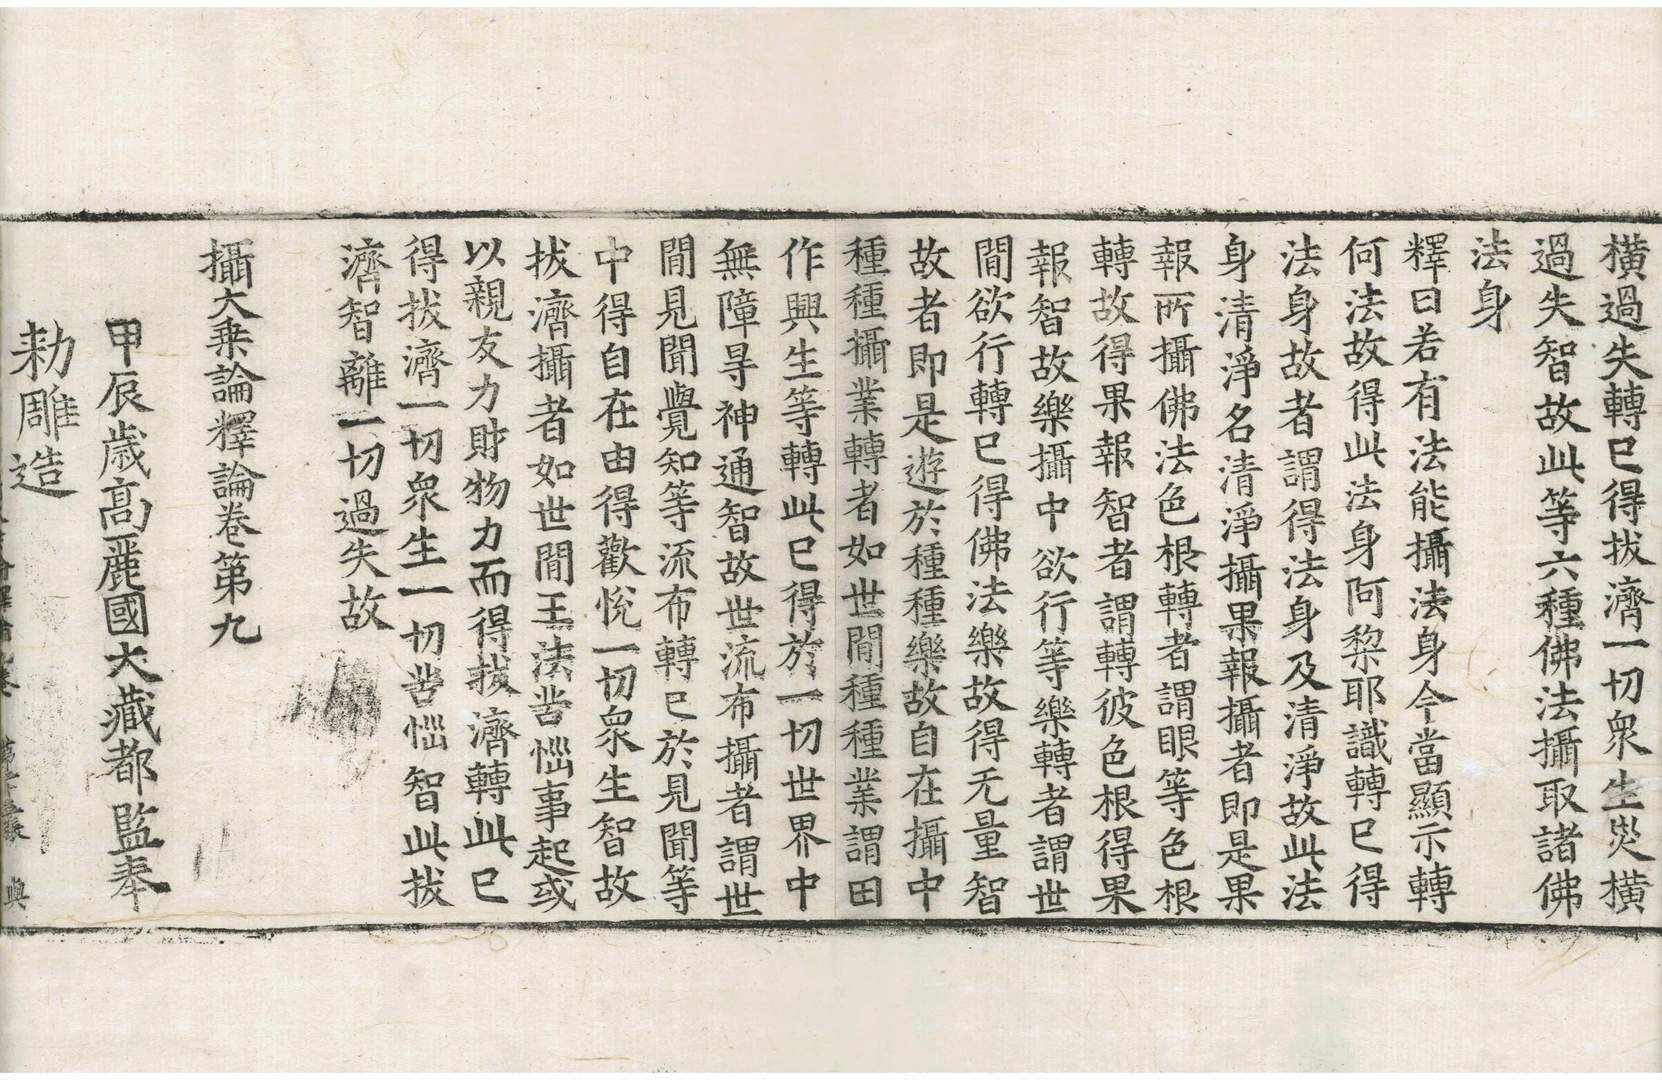 橫過失轉已得拔濟一切衆生災橫
過失智故此等六種佛法攝取諸佛
法身
釋曰若有法能攝法身今當顯示轉
何法故得此法身阿黎耶識轉已得
法身故者謂得法身及清淨故此法
身清淨名清淨攝果報攝者即是果
報所攝佛法色根轉者謂眼等色根
轉故得果報智者謂轉彼色根得果
報智故樂攝中欲行等樂轉者謂世
間欲行轉已得佛法樂故得无量智
故者即是遊於種種樂故自在攝中
種種攝業轉者如世間種種業謂田
作興生等轉此已得於一切世界中
無障㝵神通智故世流布攝者謂世
間見聞覺知等流布轉已於見聞等
中得自在由得歡悅一切衆生智故
拔濟攝者如世間王法苦惱事起或
以親友力財物力而得拔濟轉此已
得拔濟一切衆生一切苦惱智此拔
濟智離一切過失故
攝大乗論釋論卷第九
甲辰歲高麗國大藏都監奉
勅雕造